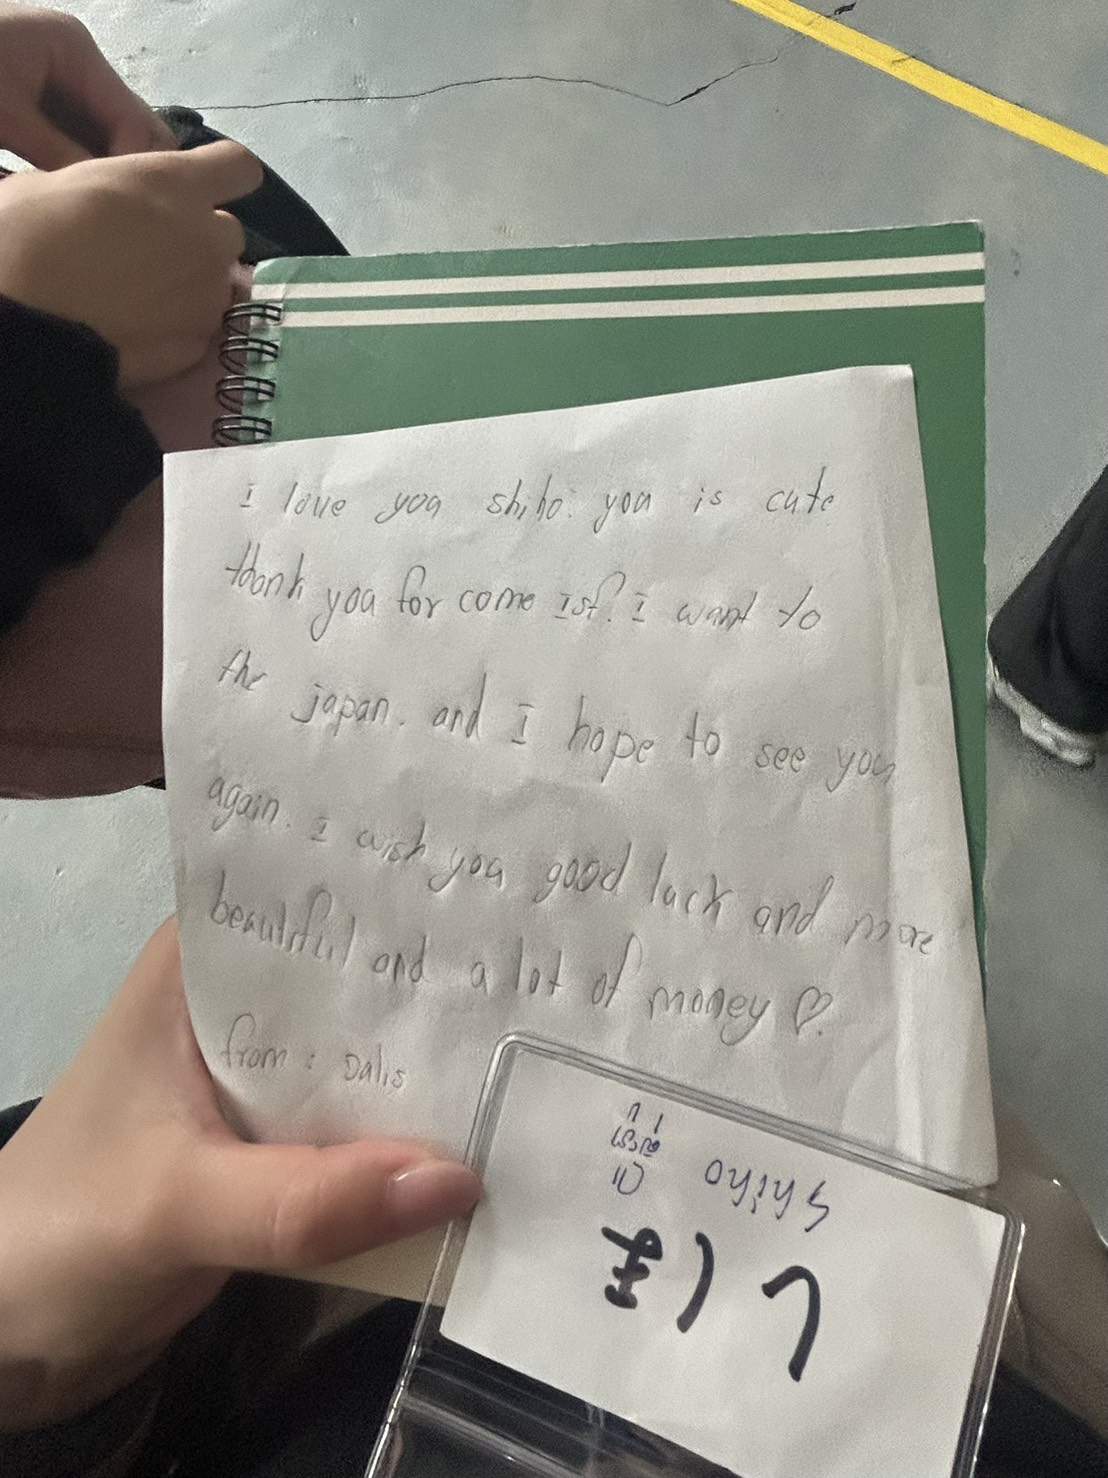 I love you shiho. you is cute
thank you for come Isf. I want to
the japan. and I hope to see you
again. I wish you good luck and more
beautiful and a lot of money ♡.
from : Dalis
しほ
shiho